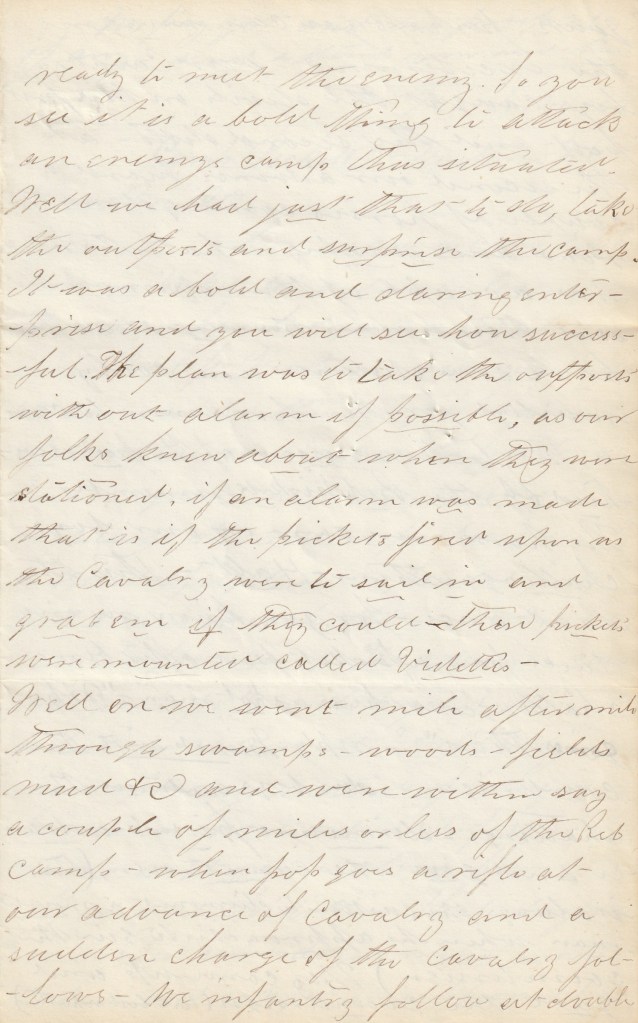 ready to meet the enemy. So you
see it is a bold thing to attack
an enemys camp thus situated.
Well we had just that to do, take
the outposts and surprise the camp.
It was a bold and daring enter-
-prise and you will see how success-
-ful. The plan was to take the outposts
with out alarm if possible, as our
folks knew about where they were
stationed, if an alarm was made
that is if the pickets fired upon us
the Cavalry were to sail in and
grab em if they could - these pickets
were mounted called Videttes -
Well on we went mile after mile
through swamps - woods - fields
mud &c and were within say
a couple of miles or less of the Reb
camp - when pop goes a rifle at
our advance of Cavalry and a
sudden charge of the Cavalry fol-
-lows - We infantry follow at double